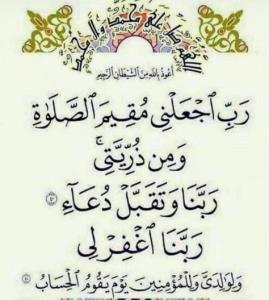 اللهم صل على محمد وآل محمد
أعوذ بالله من الشيطان الرجيم
رَبِّ ٱجْعَلْنِى مُقِيمَ ٱلصَّلَوٰةِ
وَمِن ذُرِّيَّتِى ۚ
رَبَّنَا وَتَقَبَّلْ دُعَآءِ ۝٤٠
رَبَّنَا ٱغْفِرْ لِى
وَلِوَٰلِدَىَّ وَلِلْمُؤْمِنِينَ يَوْمَ يَقُومُ ٱلْحِسَابُ